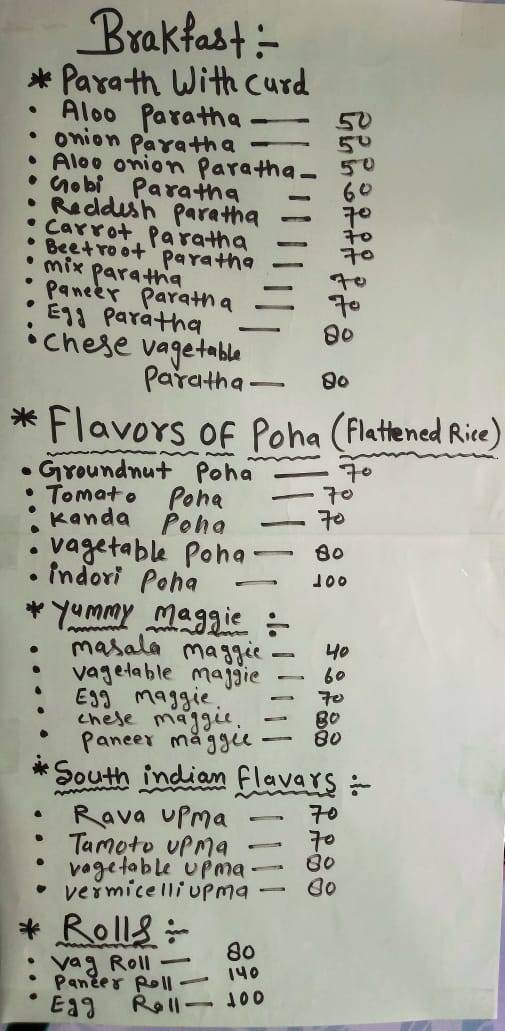 Brakfast :-
* Parath With Curd
• Aloo Paratha — 50
• onion Paratha — 50
• Aloo onion Paratha - 50
• Gobi Paratha - 60
• Reddish Paratha — 70
• Carrot Paratha - 70
• Beetroot Paratha - 70
• mix paratha — 70
• Paneer Paratha — 70
• Egg Paratha — 80
• Chese vagetable
Paratha — 80
* Flavors OF Poha (Flattened Rice)
• Groundnut Poha — 70
• Tomato Poha — 70
• Kanda Poha — 70
• vagetable Poha — 80
• indori Poha — 100
* Yummy Maggie :-
• masala maggie — 40
• vagetable maggie — 60
• Egg maggie. - 70
• chese maggie. - 80
• Paneer maggie — 80
* South indian Flavars :-
• Rava upma — 70
• Tamoto upma — 70
• vagetable upma — 80
• vermicelli upma — 80
* Rolls :-
• Vag Roll — 80
• Paneer Roll — 140
• Egg Roll — 100